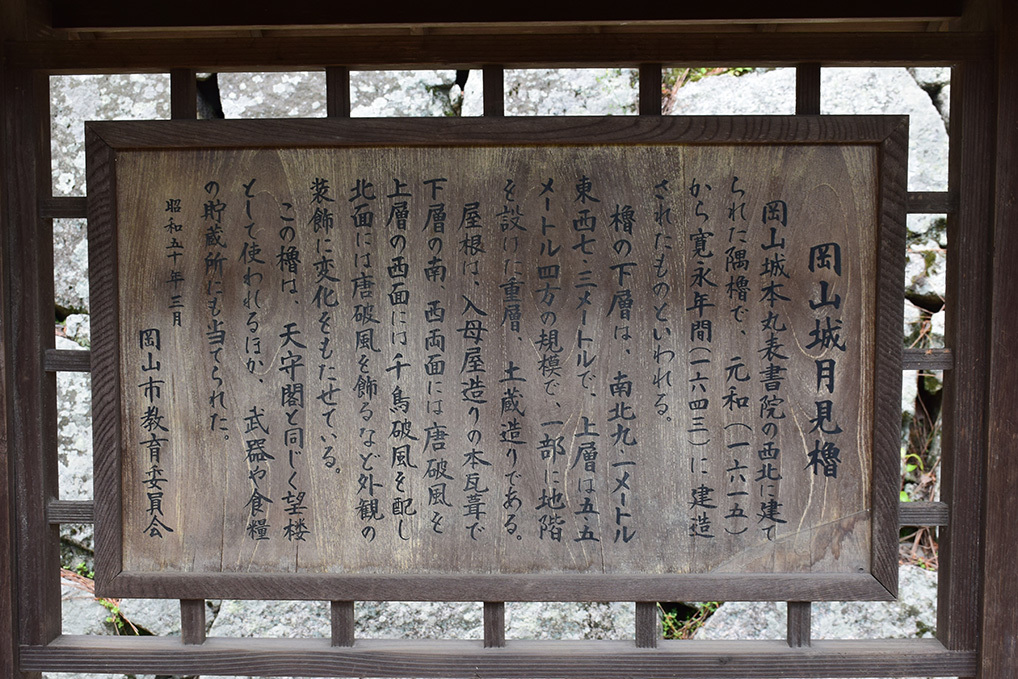 岡山城月見櫓
岡山城本丸表書院の西北に建て
られた隅櫓で、元和(一六一五)
から寛永年間(一六四三)に建造
されたものといわれる。
櫓の下層は、南北九・一メートル
東西七・三メートルで、上層は五・五
メートル四方の規模で、一部に地階
を設けた重層、土蔵造りである。
屋根は、入母屋造りの本瓦葺で
下層の南、西両面には唐破風を
上層の西面には千鳥破風を配し
北面には唐破風を飾るなど外観の
装飾に変化をもたせている。
この櫓は、天守閣と同じく望楼
として使われるほか、武器や食糧
の貯蔵所にも当てられた。
昭和五十年三月
岡山市教育委員会